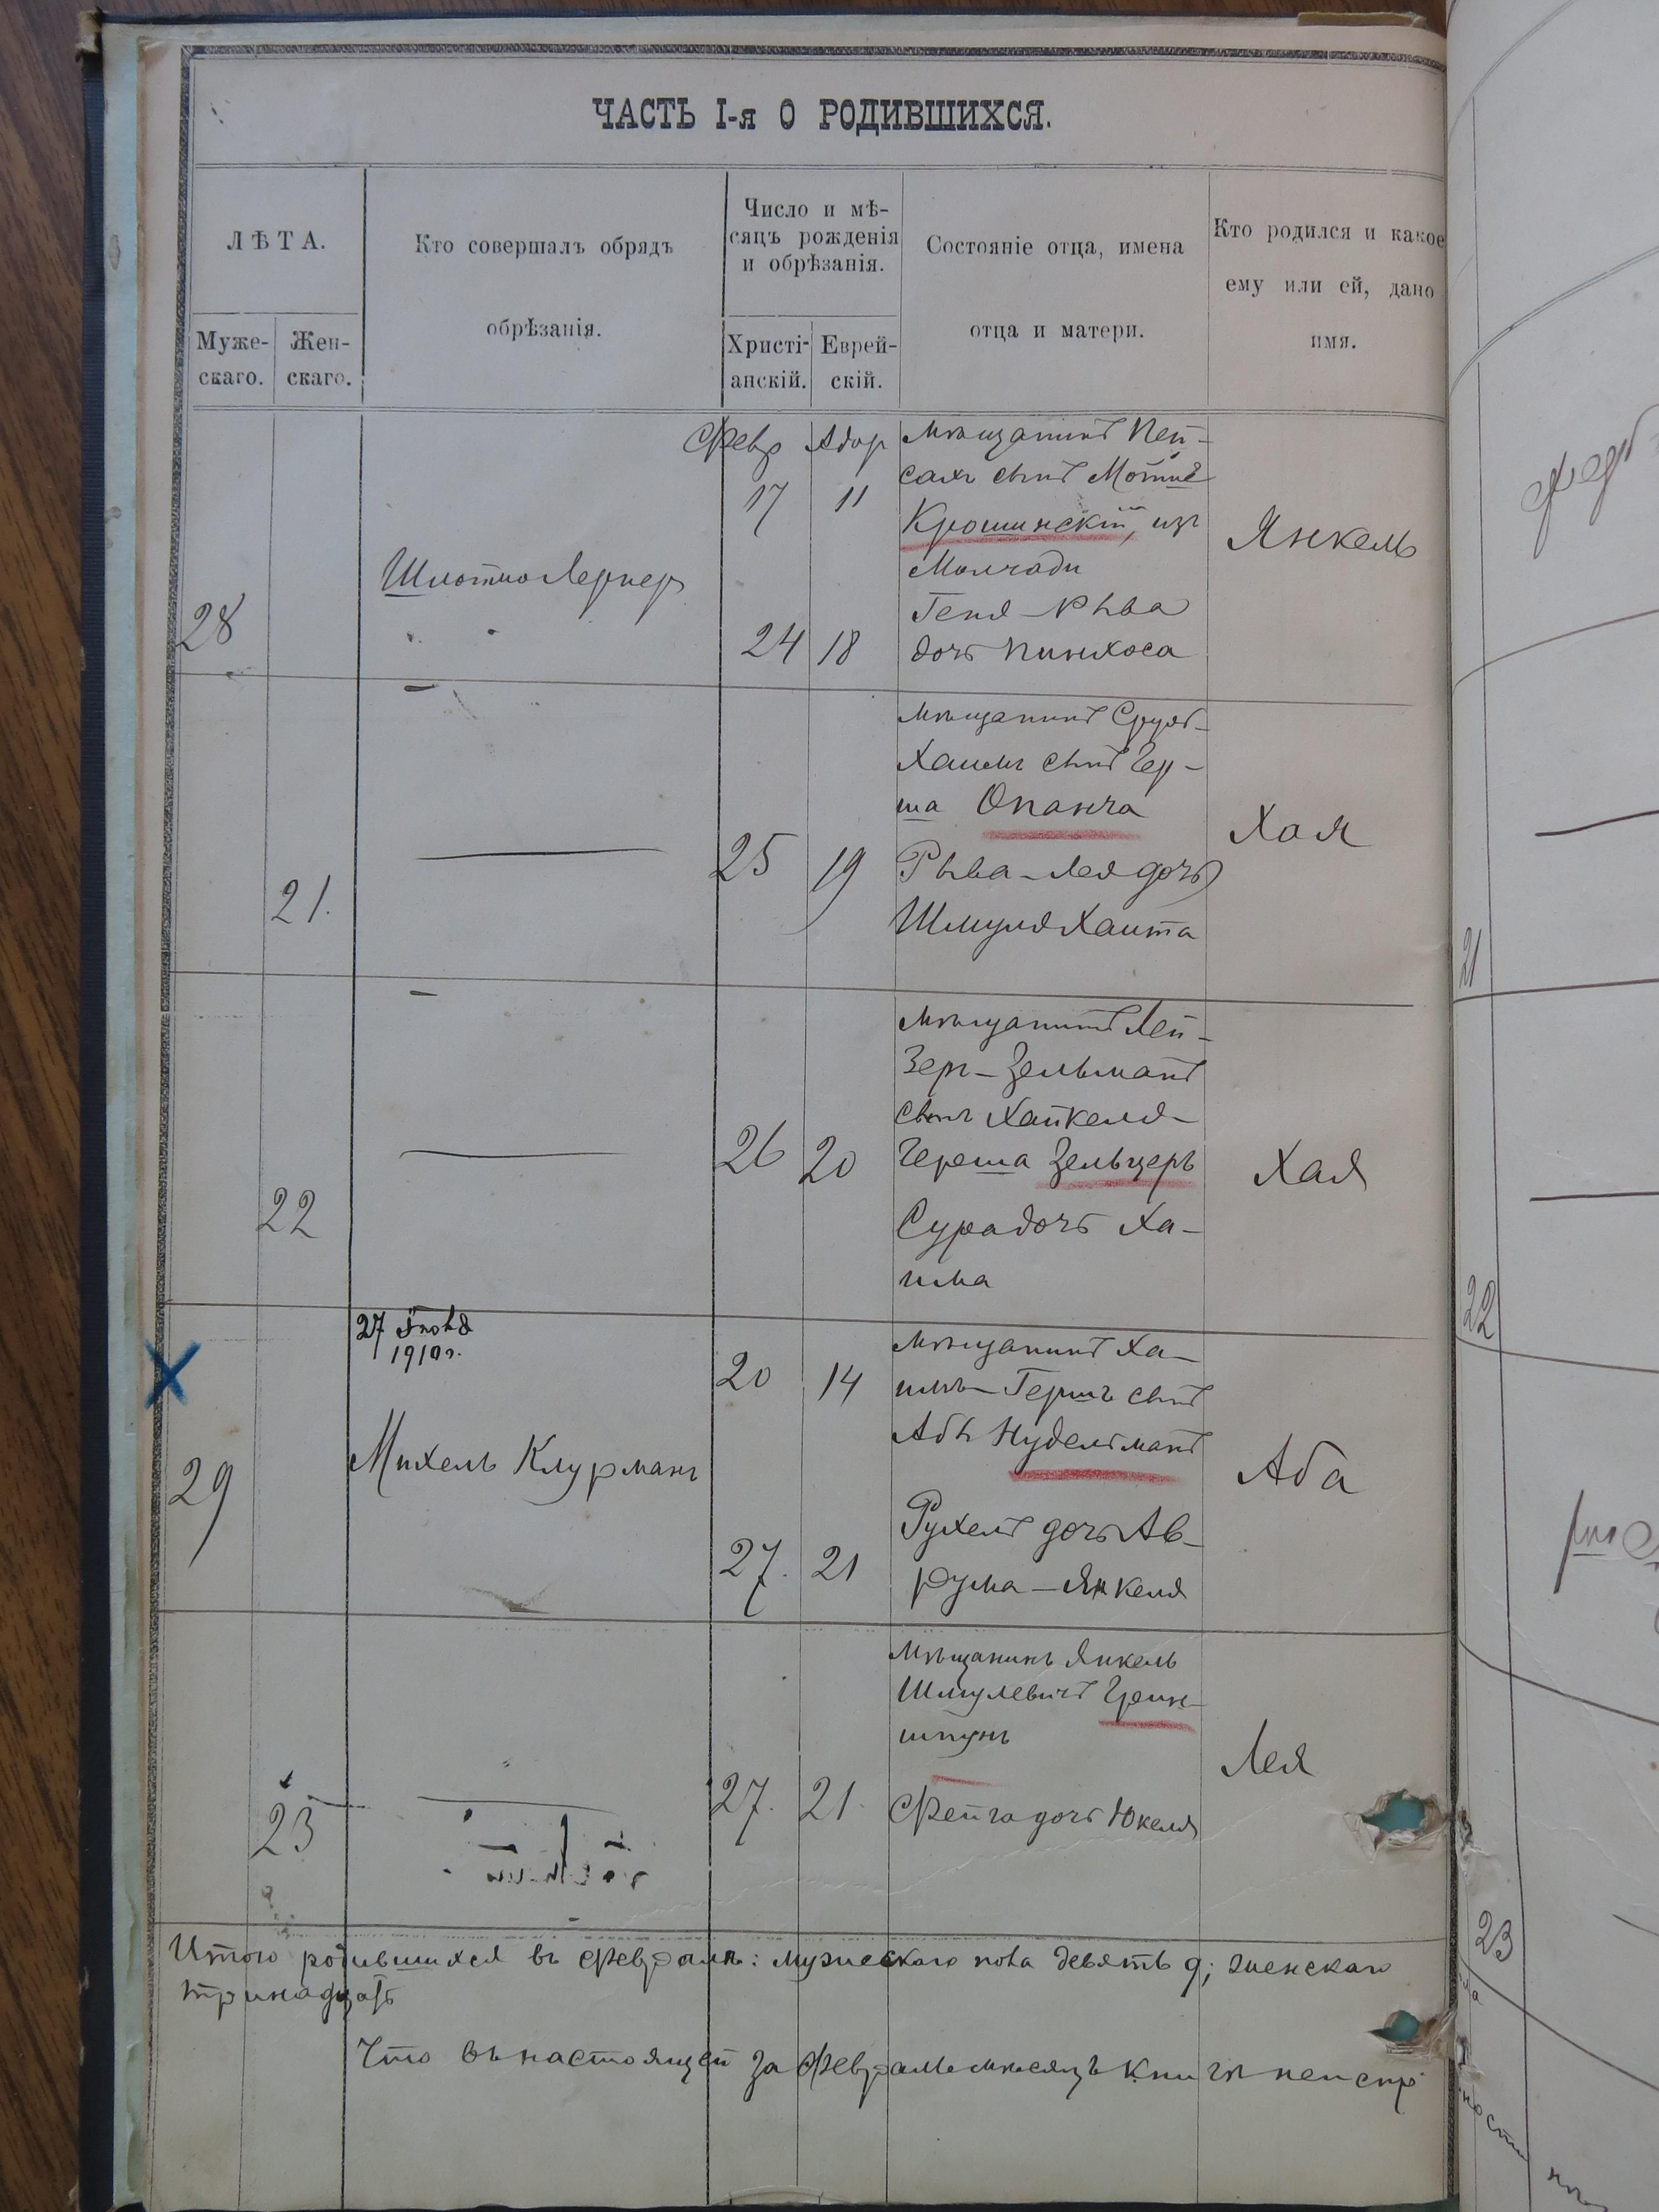 ЧАСТЬ I-я О РОДИВШИХСЯ.
ЛѢТА.
Муже-
скаго.
Жен-
скаго.
Кто совершалъ обрядъ
обрѣзанія.
Число и мѣ-
сяцъ рожденія
и обрѣзанія.
Христі-
анскій.
Еврей-
скій.
Состояніе отца, имена
отца и матери.
Кто родился и какое
ему или ей, дано
имя.
28
Шлотмо Лернеръ
Февр Адар
17 11
24 18
Мѣщанинъ Пей-
сахъ сынъ Мотте
Крошинскій, изъ
Молчади
Геня-Рыва
дочь Пинхоса
Янкель
21.
25 19
Мѣщанинъ Сруль-
Хаимъ сынъ Гер-
ша Опанча
Рыва-Лея дочь
Шмуля Хаита
Хая
22
26 20
Мѣщанинъ Лей-
Зеръ-Зельманъ
сынъ Хайкеля-
Герша Зельцеръ
Сура дочь Ха-
има
Хая
27 Іюля
1910г.
29
Михель Клурманъ
20 14
27. 21
Мѣщанинъ Ха-
имъ-Гершъ сынъ
Абы Нудельманъ
Рухель дочь Ав-
рума-Янкеля
Аба
23
27. 21.
Мѣщанинъ Янкель
Шмулевичъ Грин-
шпунъ
Фейга дочь Юкеля
Лея
Итого родившихся въ Февралѣ: мужескаго пола девять 9; женскаго
тринадцать
Что въ настоящей за Февраль мѣсяцъ книгѣ неиспр
21
22
23